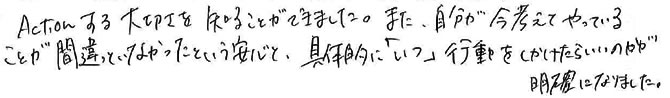 Actionする大切さを知ることができました。また、自分が今考えてやっている
ことが間違っていなかったという安心と、具体的に「いつ」行動をしかけたらいいのかが
明確になりました。